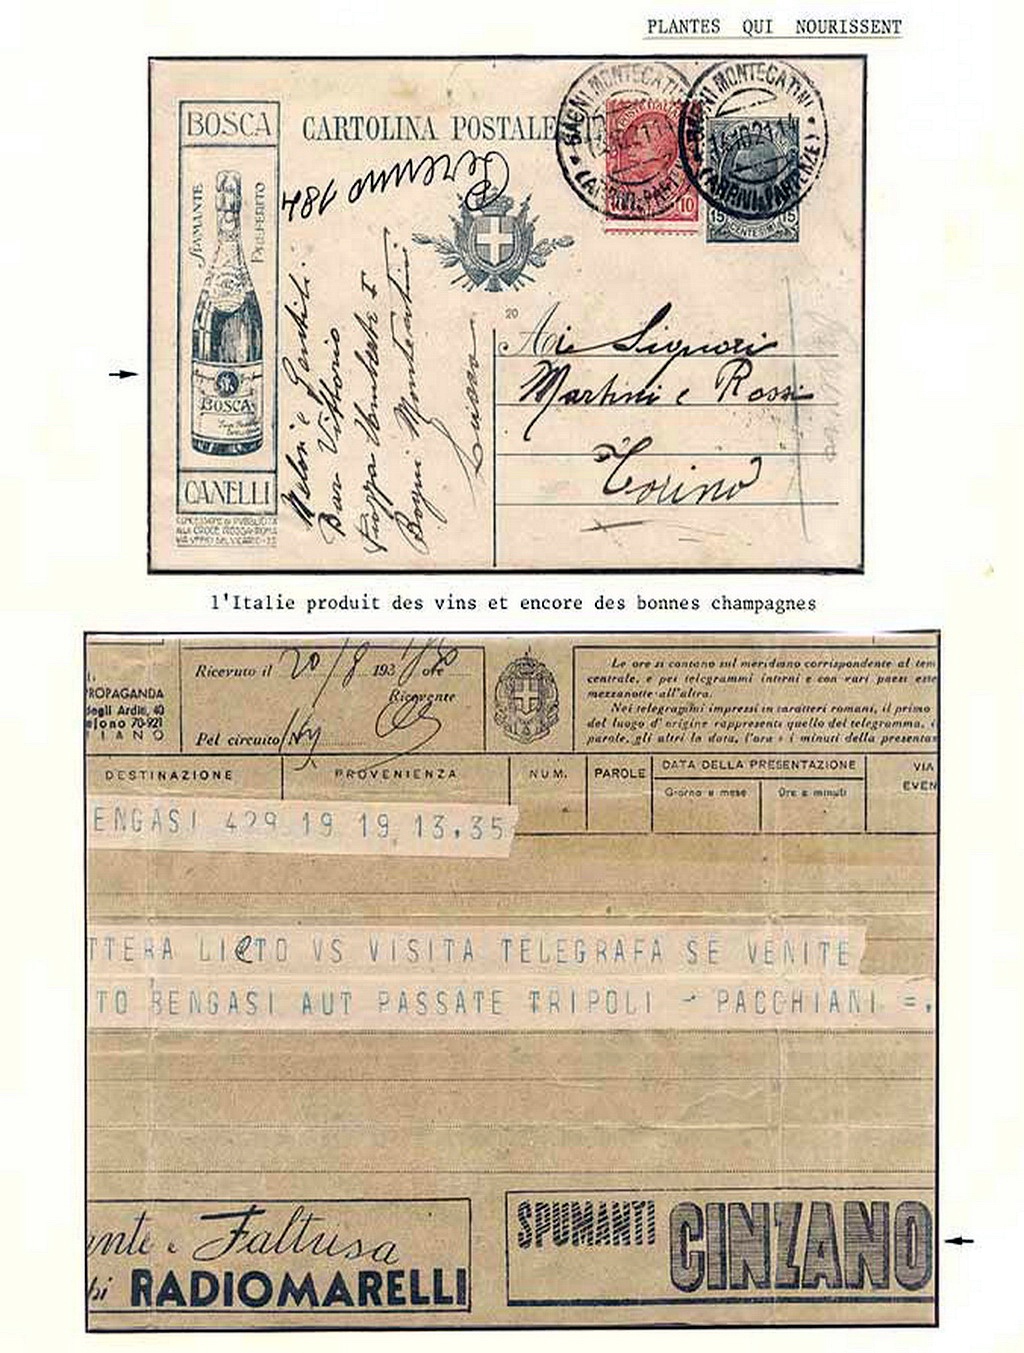 PLANTES QUI NOURISSENT
BOSCA
SPUMANTE
PREFERITO
BOSCA
CANELLI
CONCESSIONE DI PUBBLICITÀ
ALLA CROCE ROSSA-ROMA
VIA UFFICI DEL VICARIO-35
CARTOLINA POSTALE
184
BAGNI MONTECATINI
(ARRIVI E PARTENZE)
BAGNI MONTECATINI
(ARRIVI E PARTENZE)
14.10.21.14
10
15 CENTESIMI 15
20
Meloni e Gentili
Bar Vittorio
Piazza Umberto I
Bagni Montecatini
Ai Signori
Martini e Rossi
Torino
l'Italie produit des vins et encore des bonnes champagnes
PROPAGANDA
degli Arditi, 40
elono 70-921
ILANO
Ricevuto il 20/8 193 ore
Ricevente
Pel circuito Ny
Le ore si contano sul meridiano corrispondente al tem
centrale, e pei telegrammi interni e con vari paesi este
mezzanotte all'altra.
Nei telegrammi impressi in caratteri romani, il primo
del luogo d'origine rappresenti quello del telegramma, i
parole, gli altri la data, l'ora e i minuti della presentaz
DESTINAZIONE PROVENIENZA NUM. PAROLE DATA DELLA PRESENTAZIONE VIA
Giorno e mese Ore e minuti EVEN
ENGASI 429 19 19 13.35
TTERA LIETO VS VISITA TELEGRAFA SE VENITE
TO BENGASI AUT PASSATE TRIPOLI - PACCHIANI =.
ante e Faltusa
hi RADIOMARELLI
SPUMANTI CINZANO